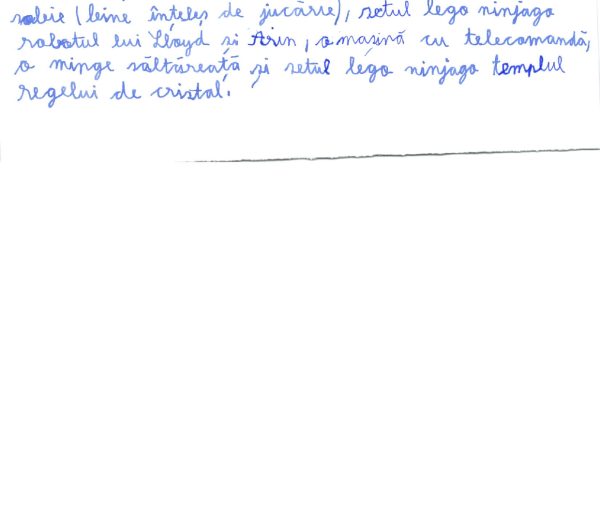 sabie (beine înțeles de jucărie), setul lego ninjago
robotul lui Lloyd și Arin, o mașină cu telecomandă,
o minge săltăreață și setul lego ninjago templul
regelui de cristal.